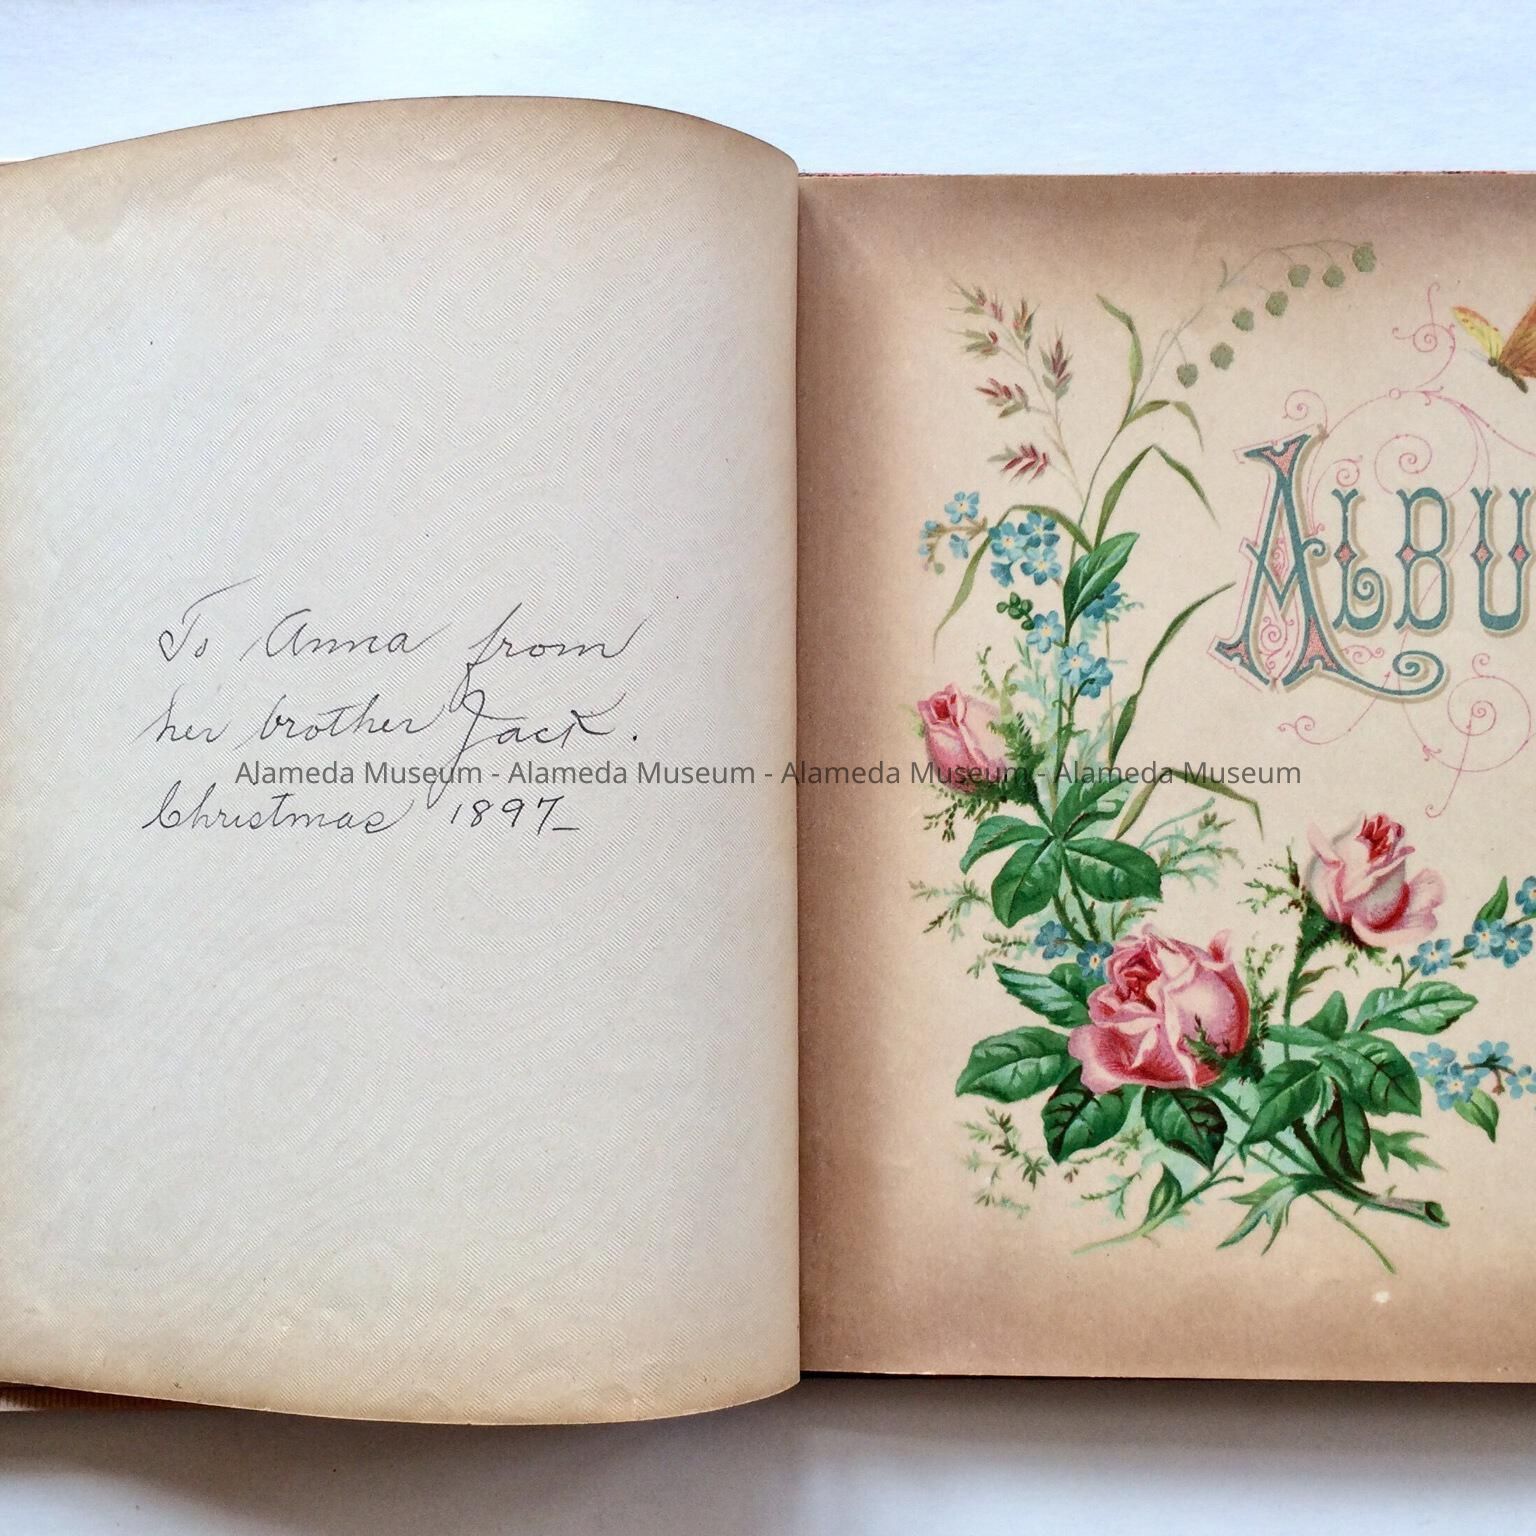 To Anna from
her brother Jack.
Christmas 1897_
ALBU
Alameda Museum - Alameda Museum - Alameda Museum - Alameda Museum